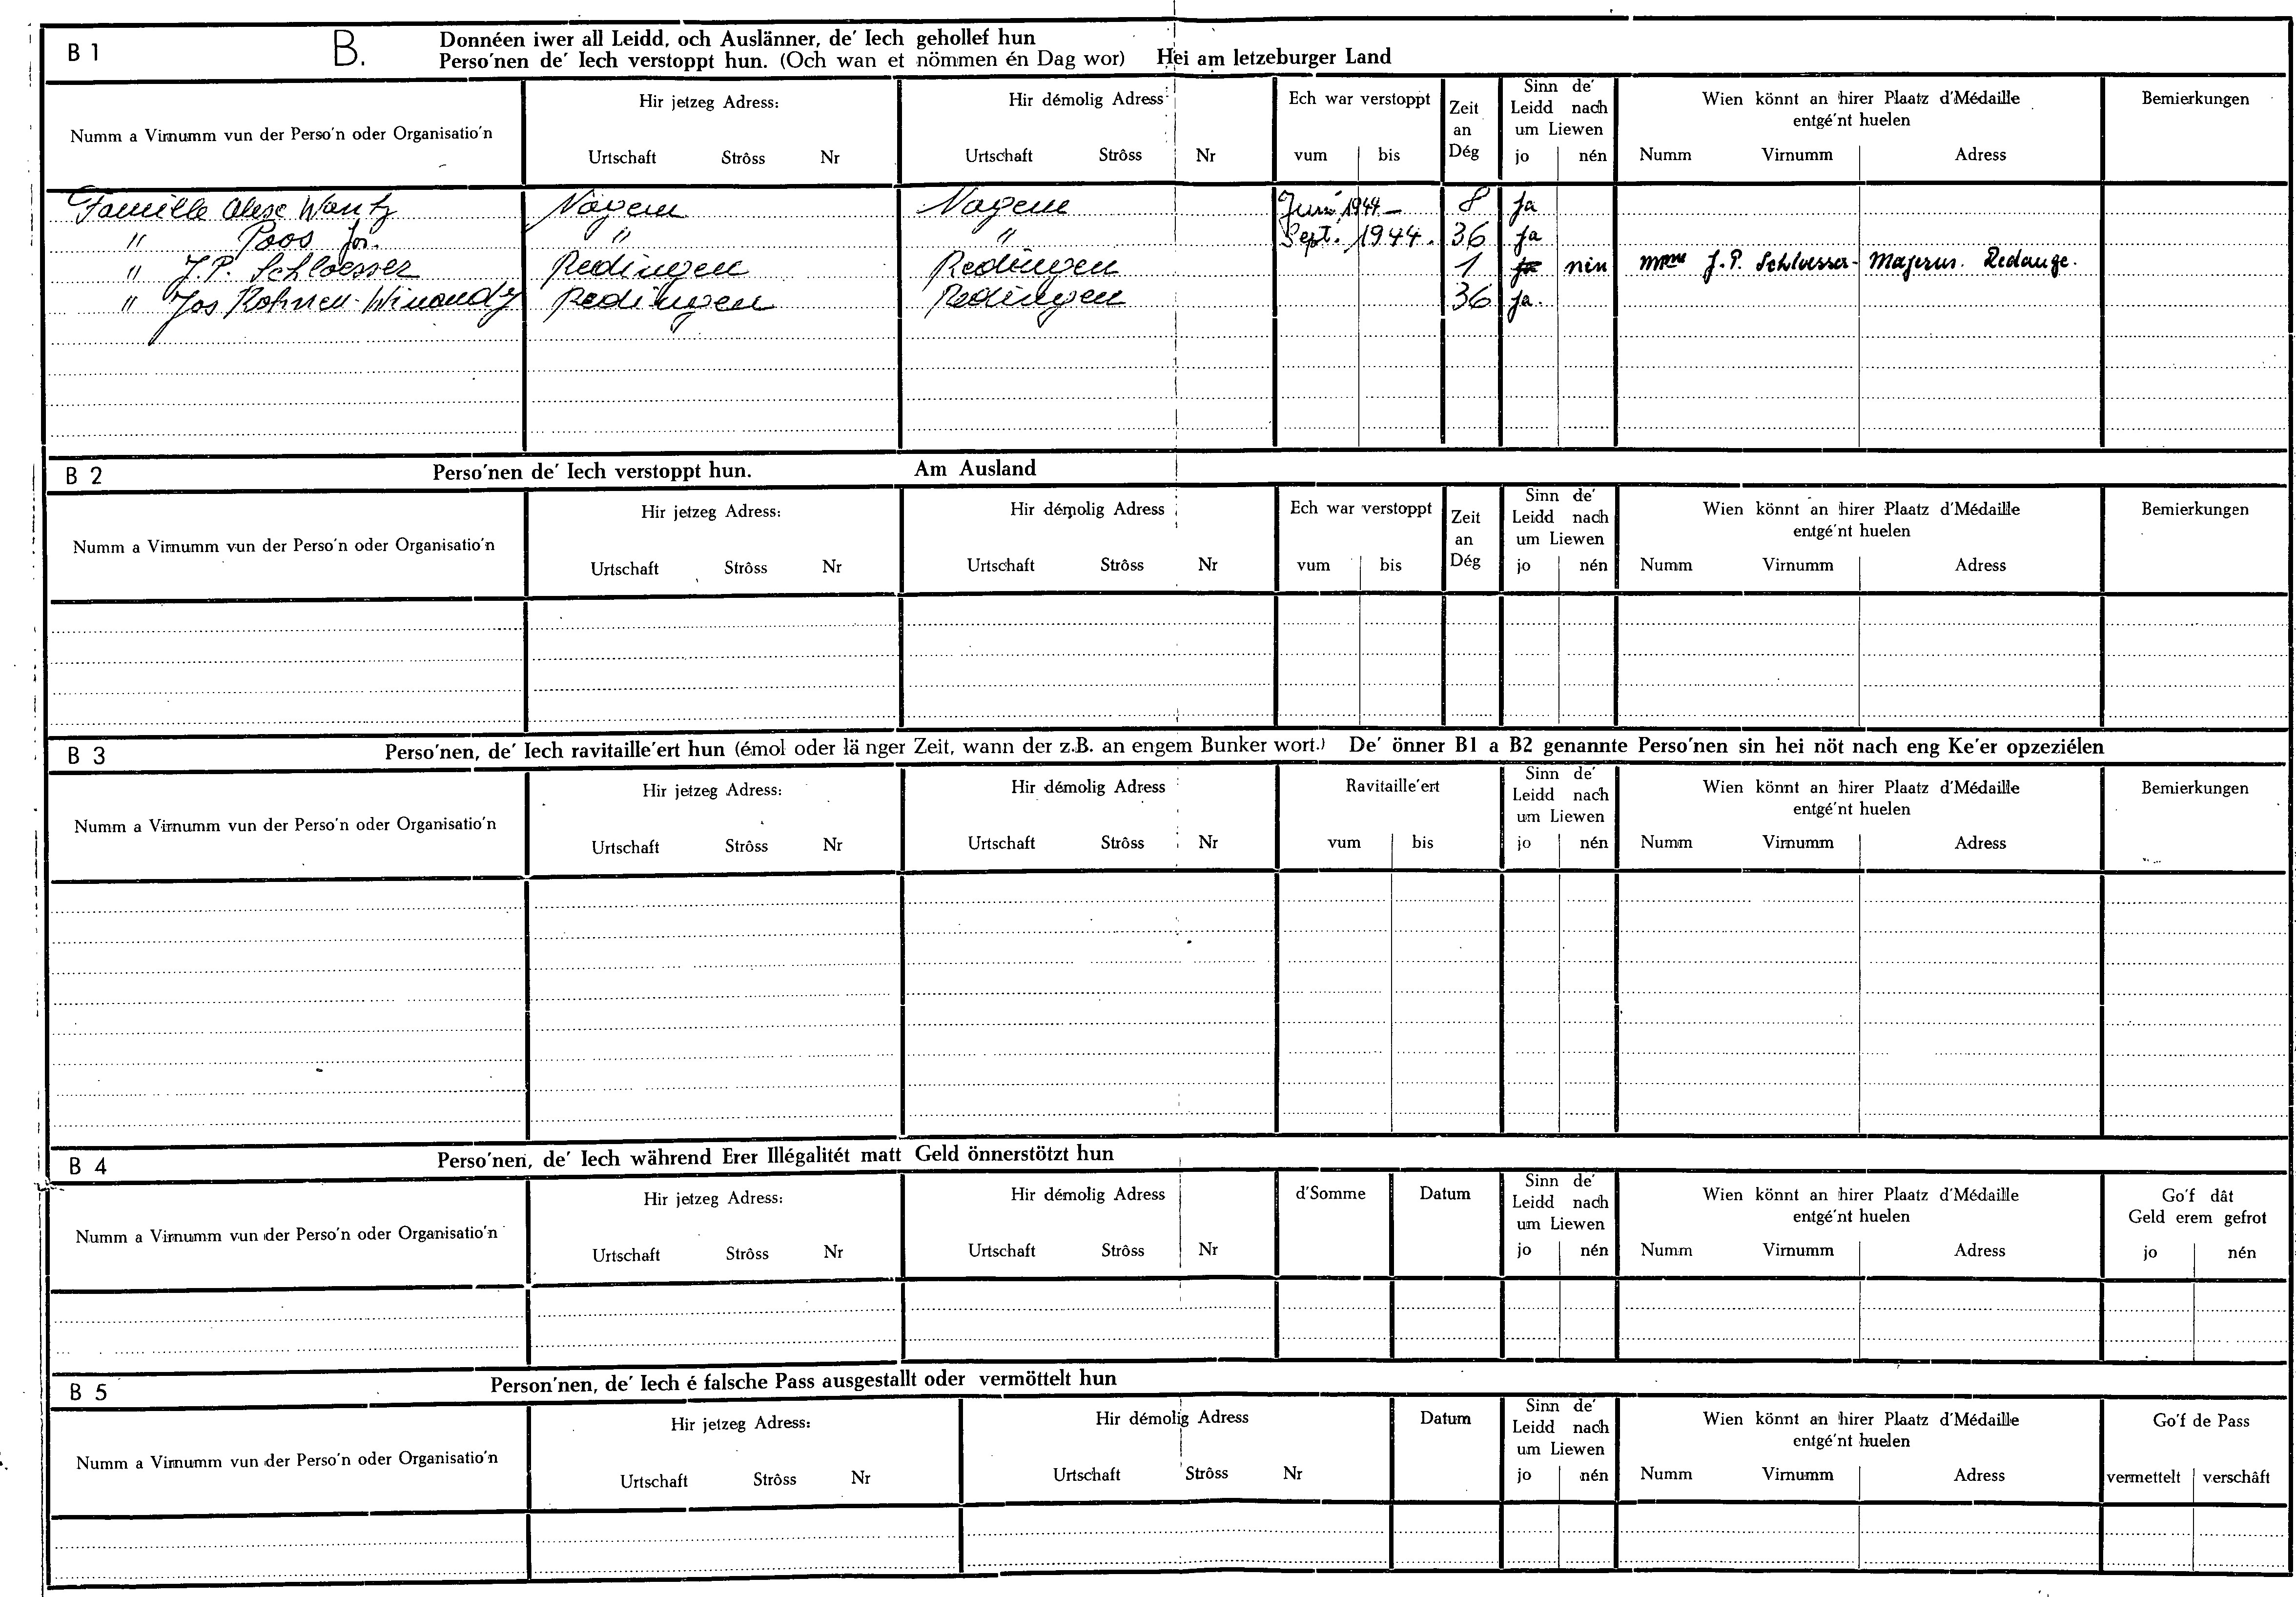 B 1 B. Donnéen iwer all Leidd, och Auslänner, de' Iech gehollef hun
Perso'nen de' Iech verstoppt hun. (Och wan et nömmen én Dag wor) Hei am letzeburger Land
Numm a Virnumm vun der Perso'n oder Organisatio'n
Hir jetzeg Adress:
Urtschaft Strôss Nr
Hir démolig Adress
Urtschaft Strôss Nr
Ech war verstoppt
vum bis
Zeit
an
Dég
Sinn de'
Leidd nach
um Liewen
jo nén
Wien könnt an hirer Plaatz d'Médaille
entgé'nt huelen
Numm Virnumm Adress
Bemierkungen
Famille Wantz Nagem Nagem Juni 1944 – 8 Ja
" Poos Jos. " " Sept. 1944. 36 Ja
" J.P. Schloesser Redingen Redingen 1 nén Mme J.P. Schloesser-Majerus. Redange.
" Jos Rohnen-Winandy Redingen Redingen 36 Ja.
B 2 Perso'nen de' Iech verstoppt hun. Am Ausland
Numm a Virnumm vun der Perso'n oder Organisatio'n
Hir jetzeg Adress:
Urtschaft Strôss Nr
Hir démolig Adress
Urtschaft Strôss Nr
Ech war verstoppt
vum bis
Zeit
an
Dég
Sinn de'
Leidd nach
um Liewen
jo nén
Wien könnt an hirer Plaatz d'Médaille
entgé'nt huelen
Numm Virnumm Adress
Bemierkungen
B 3 Perso'nen, de' Iech ravitaille'ert hun (émol oder länger Zeit, wann der z.B. an engem Bunker wort.) De' önner B1 a B2 genannte Perso'nen sin hei nöt nach eng Ke'er opzeziélen
Numm a Virnumm vun der Perso'n oder Organisatio'n
Hir jetzeg Adress:
Urtschaft Strôss Nr
Hir démolig Adress
Urtschaft Strôss Nr
Ravitaille'ert
vum bis
Sinn de'
Leidd nach
um Liewen
jo nén
Wien könnt an hirer Plaatz d'Médaille
entgé'nt huelen
Numm Virnumm Adress
Bemierkungen
B 4 Perso'nen, de' Iech während Erer Illégalitét matt Geld önnerstötzt hun
Numm a Virnumm vun der Perso'n oder Organisatio'n
Hir jetzeg Adress:
Urtschaft Strôss Nr
Hir démolig Adress
Urtschaft Strôss Nr
d'Somme Datum
Sinn de'
Leidd nach
um Liewen
jo nén
Wien könnt an hirer Plaatz d'Médaille
entgé'nt huelen
Numm Virnumm Adress
Go'f dât
Geld erem gefrot
jo nén
B 5 Person'nen, de' Iech é falsche Pass ausgestallt oder vermöttelt hun
Numm a Virnumm vun der Perso'n oder Organisatio'n
Hir jetzeg Adress:
Urtschaft Strôss Nr
Hir démolig Adress
Urtschaft Strôss Nr
Datum
Sinn de'
Leidd nach
um Liewen
jo nén
Wien könnt an hirer Plaatz d'Médaille
entgé'nt huelen
Numm Virnumm Adress
Go'f de Pass
vermettelt verschâft